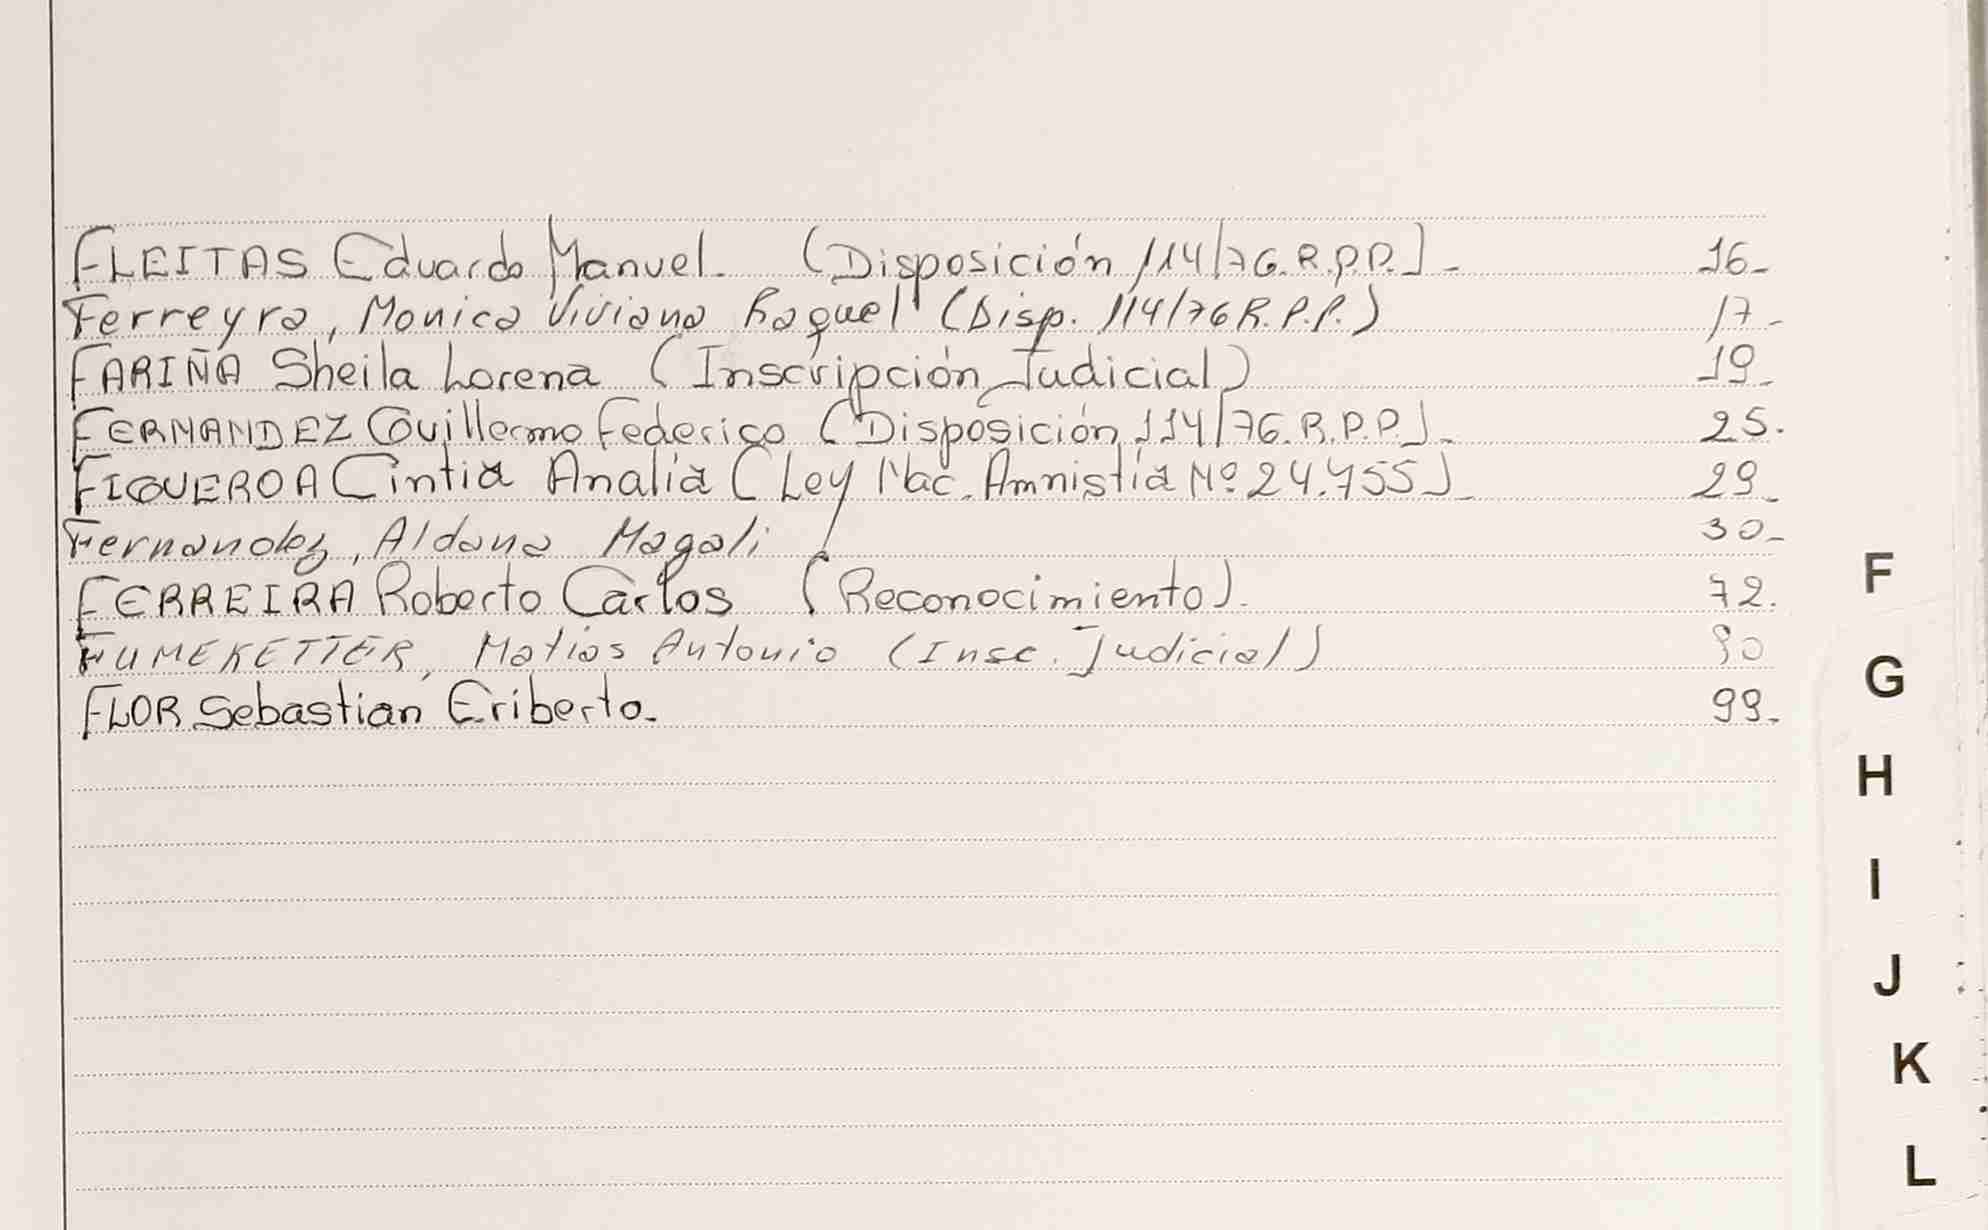 FLEITAS Eduardo Manuel. (Disposición 114/76.R.P.P.). 16-
Ferreyra, Monica Viviana Raquel (Disp. 114/76 R.P.P.) 17-
FARIÑA Sheila Lorena (Inscripción Judicial) 19-
FERNANDEZ Guillermo Federico (Disposición 114/76.R.P.P.). 25.
FIGUEROA Cintia Analia (Ley Nac. Amnistía Nº 24.755). 29-
Fernandez, Aldana Magali 30-
FERREIRA Roberto Carlos (Reconocimiento). 72.
HUMEKETTER, Matias Antonio (Insc. Judicial) 90
FLOR Sebastian Eriberto. 99.
F
G
H
I
J
K
L